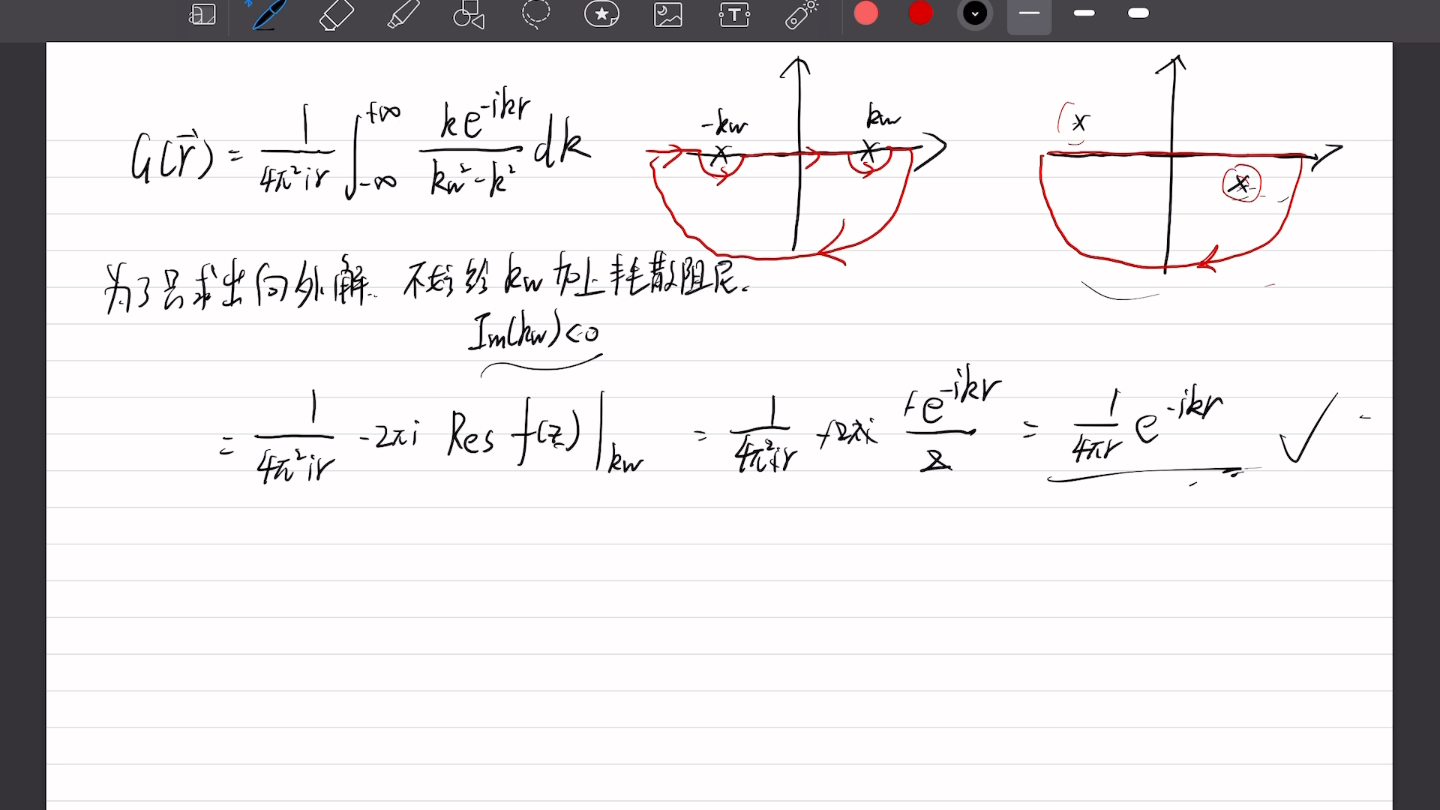 G(r⃗) = 1/(4π²ir) ∫_{-∞}^{+∞} ke^{-ikr}/(kw²-k²) dk
-kw kw
为了只求出向外解. 不妨给 kw 加上耗散阻尼.
Im(kw)<0
= 1/(4π²ir) -2πi Res f(z)|_{kw} = 1/(4π²ir) +2πi e^{-ikr}/2 = 1/(4πr) e^{-ikr} ✓